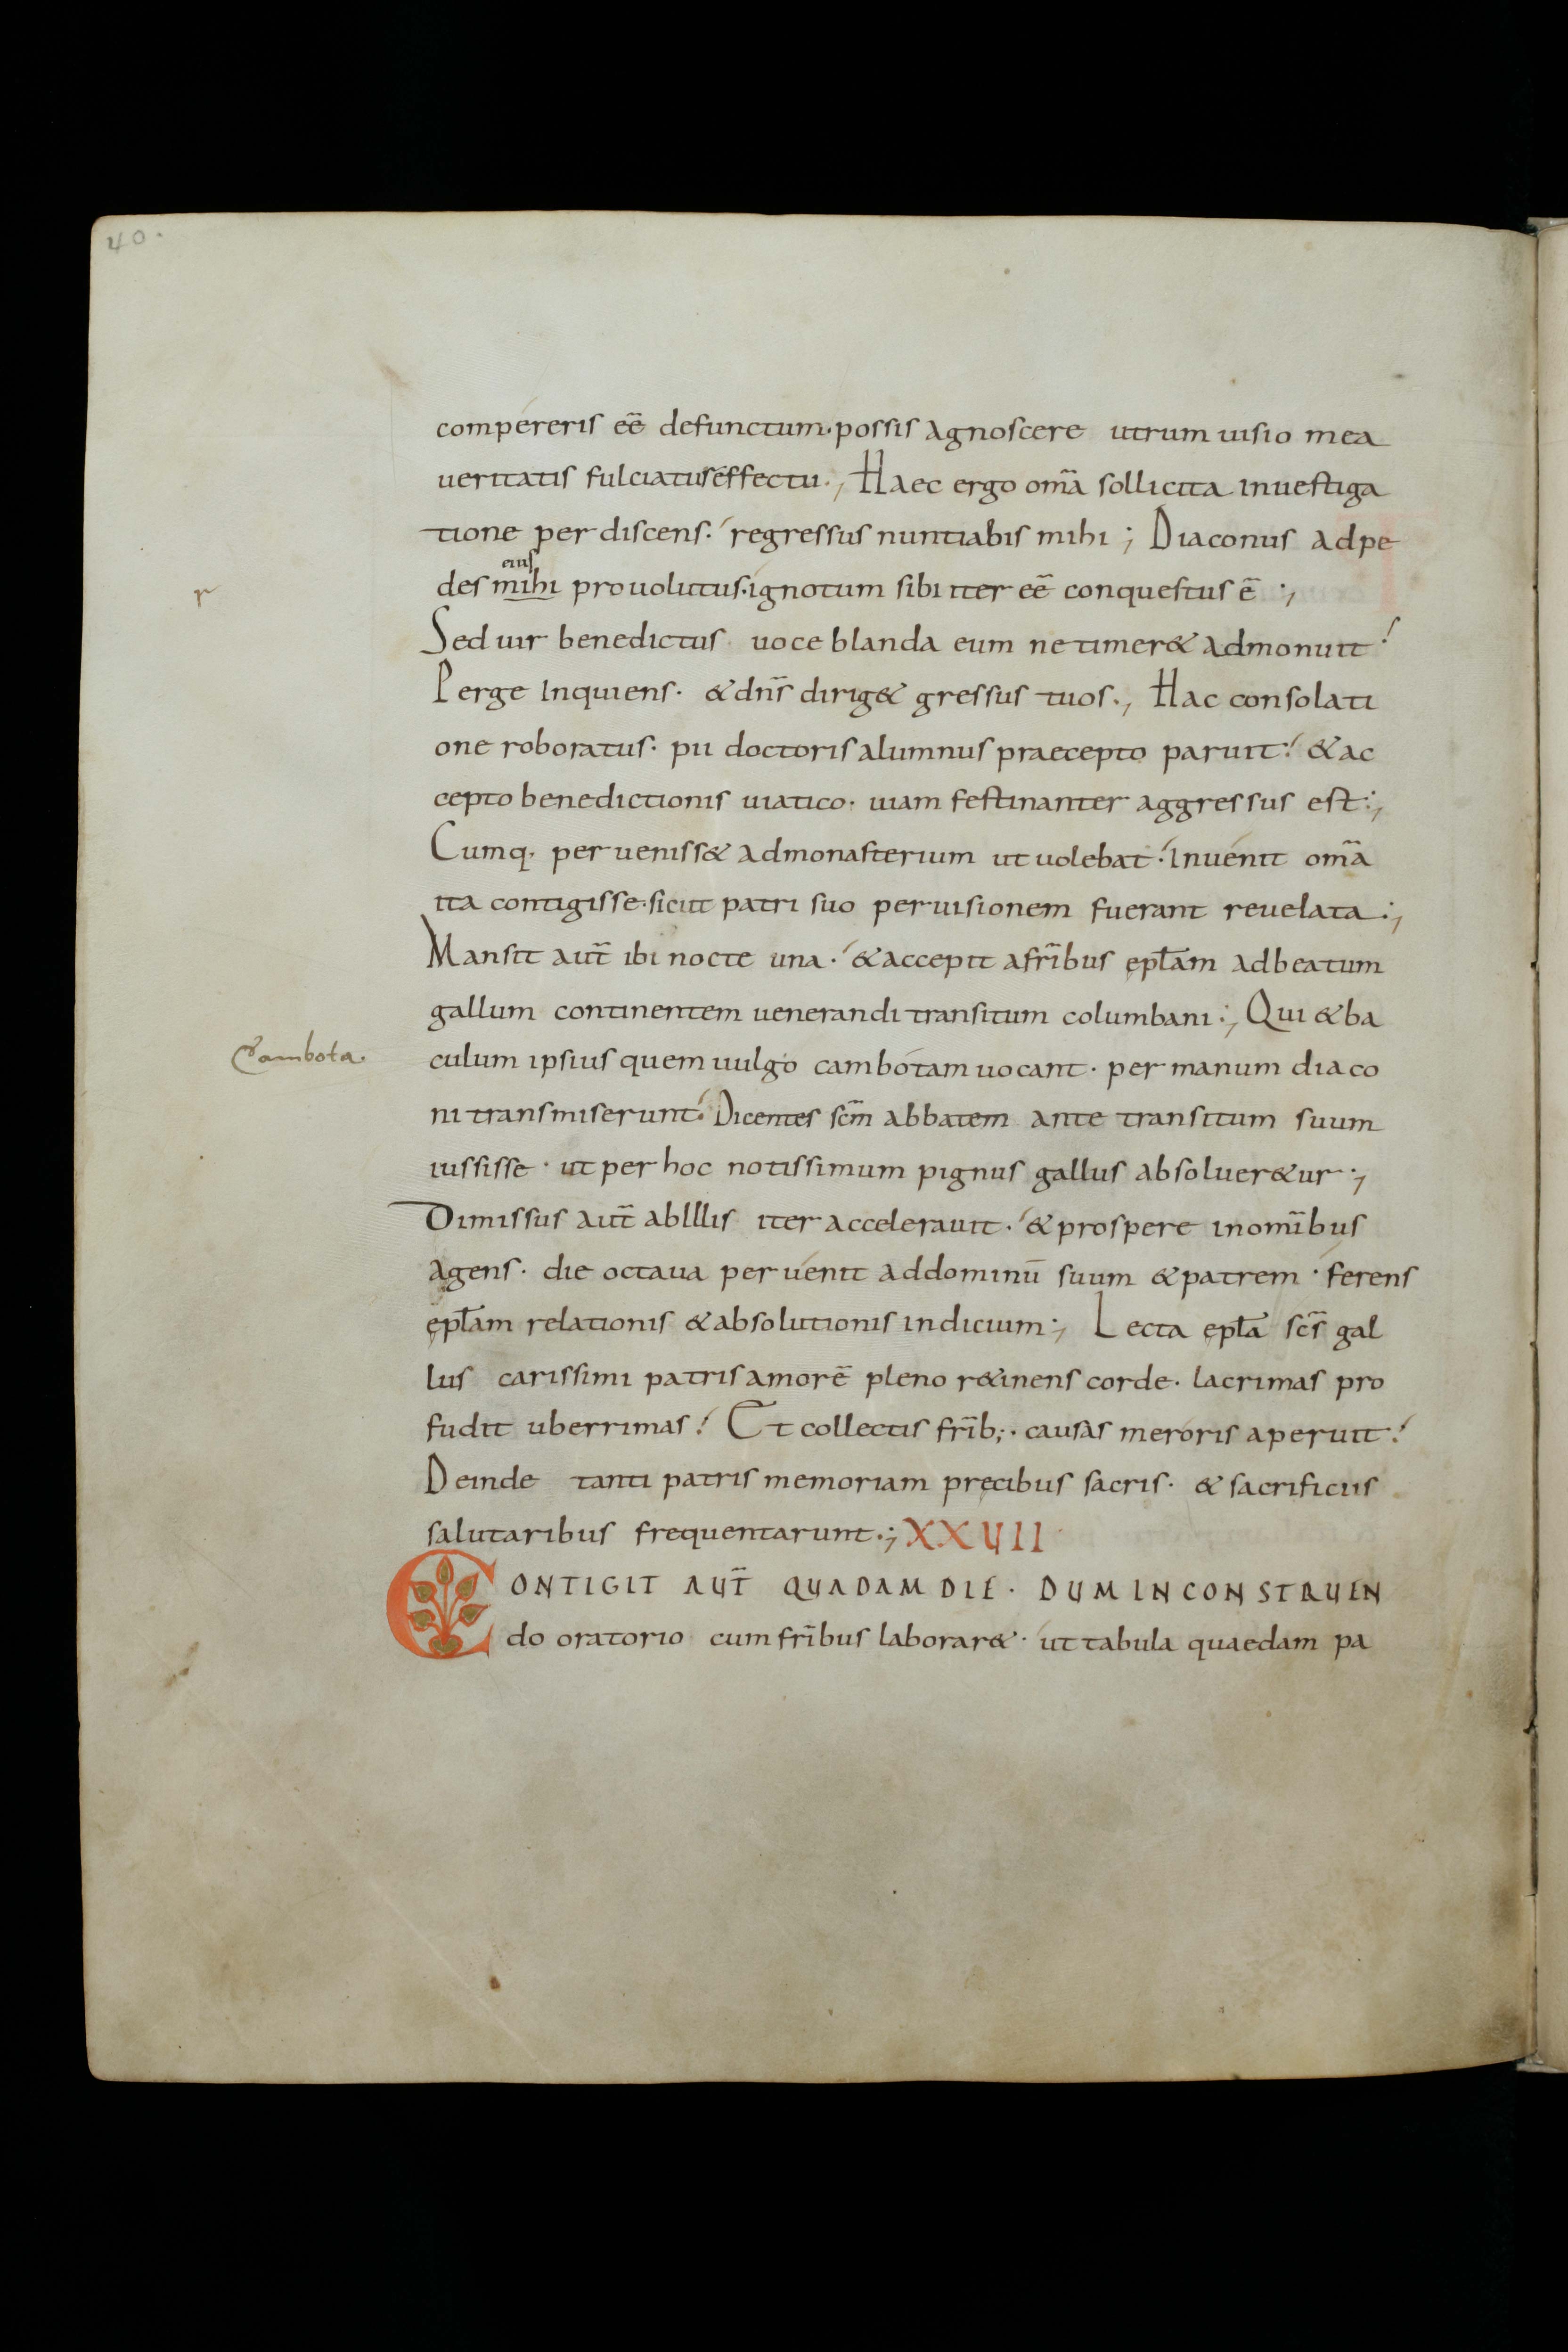 40.
compereris eē defunctum· possis agnoscere utrum uisio mea
ueritatis fulciatur effectu·, Haec ergo om̅a sollicita inuestiga
tione per discens· regressus nuntiabis mihi ; Diaconus adpe
eius
r
des mihi prouolutus· ignotum sibi iter eē conquestus ē ;
Sed uir benedictus uoce blanda eum ne timer& admonuit
Perge Inquiens· & dn̅s dirig& gressus tuos·, Hac consolati
one roboratus· pii doctoris alumnus praecepto paruit: & ac
cepto benedictionis uiatico· uiam festinanter aggressus est:,
Cumq· per ueniss& admonasterium ut uolebat· Inuenit om̅a
ita contigisse· sicut patri suo per uisionem fuerant reuelata:,
Mansit aut̅ ibi nocte una· & accepit a fr̅ibus ępl̅am ad beatum
gallum continentem uenerandi transitum columbani:, Qui & ba
Cambota.
culum ipsius quem uulgo cambotam uocant· per manum diaco
ni transmiserunt· Dicentes sc̅m abbatem ante transitum suum
iussisse· ut per hoc notissimum pignus gallus absoluer&ur ;
Dimissus aut̅ ab Illis iter accelerauit· & prospere in om̅ibus
agens· die octaua per uenit ad dominū suum & patrem· ferens
ępl̅am relationis & absolutionis indicium:, Lecta epl̅a sc̅s gal
lus carissimi patris amorē pleno r&inens corde· lacrimas pro
fudit uberrimas! Et collectis fr̅ib;· causas meroris aperuit!
Deinde tanti patris memoriam pręcibus sacris· & sacrificiis
salutaribus frequentarunt·; XXVII
CONTIGIT AUT̅ QUADAM DIE· DUM IN CONSTRUEN
do oratorio cum fr̅ibus laborar&· ut tabula quaedam pa